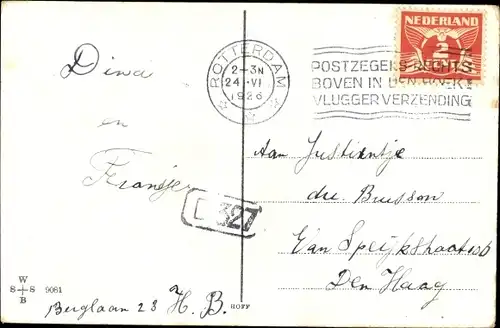 Dina
en
Fransje
ROTTERDAM
2-3N
24.VI
1926
POSTZEGELS RECHTS
BOVEN IN DEN HOEK
VLUGGER VERZENDING
NEDERLAND
2
CENT
Aan Justientje
du Buisson
Van Speijkstraat
Den Haag
D 327
W
S S 9081
B
Berglaan 28 H. B.
HOFF